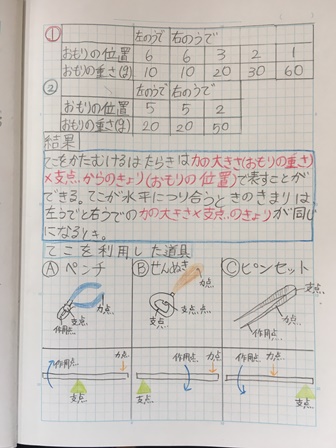 ① 左のうで 右のうで
おもりの位置 6 6 3 2 1
おもりの重さ(g) 10 10 20 30 60
② 左のうで 右のうで
おもりの位置 5 5 2
おもりの重さ(g) 20 20 50
結果
てこをかたむけるはたらきは力の大きさ(おもりの重さ)
×支点からのきょり(おもりの位置)で表すことが
できる。てこが水平につり合うときのきまりは
左うでと右うでの力の大きさ×支点のきょりが同じ
になるとき。
てこを利用した道具
Ⓐペンチ Ⓑせんぬき Ⓒピンセット
力点 支点 作用点
力点 支点
支点 力点 作用点
作用点 力点 支点
作用点 力点 支点
作用点 力点 支点